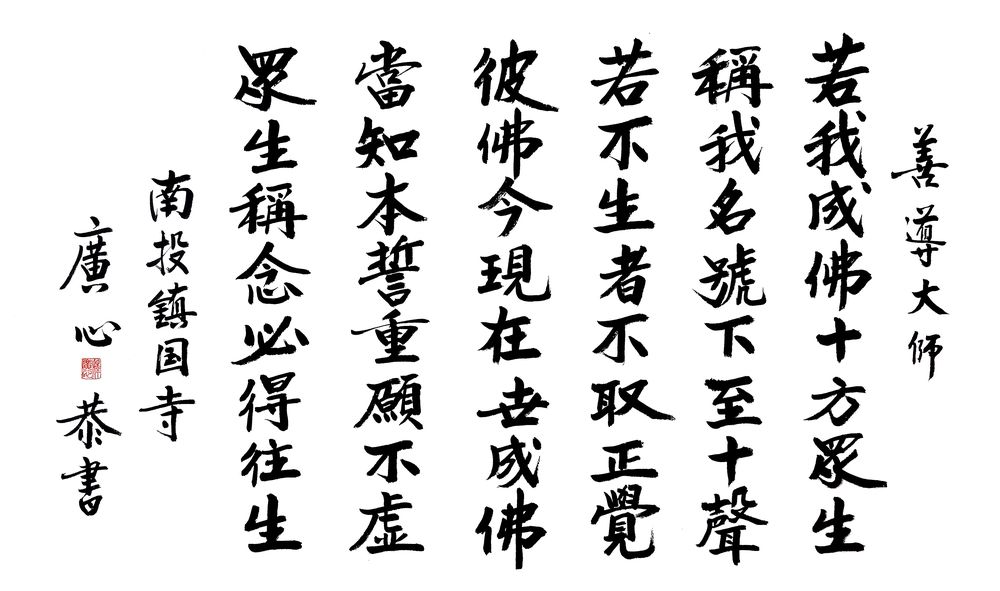 善導大師
若我成佛十方眾生
稱我名號下至十聲
若不生者不取正覺
彼佛今現在世成佛
當知本誓重願不虛
眾生稱念必得往生
南投鎮国寺
廣心恭書